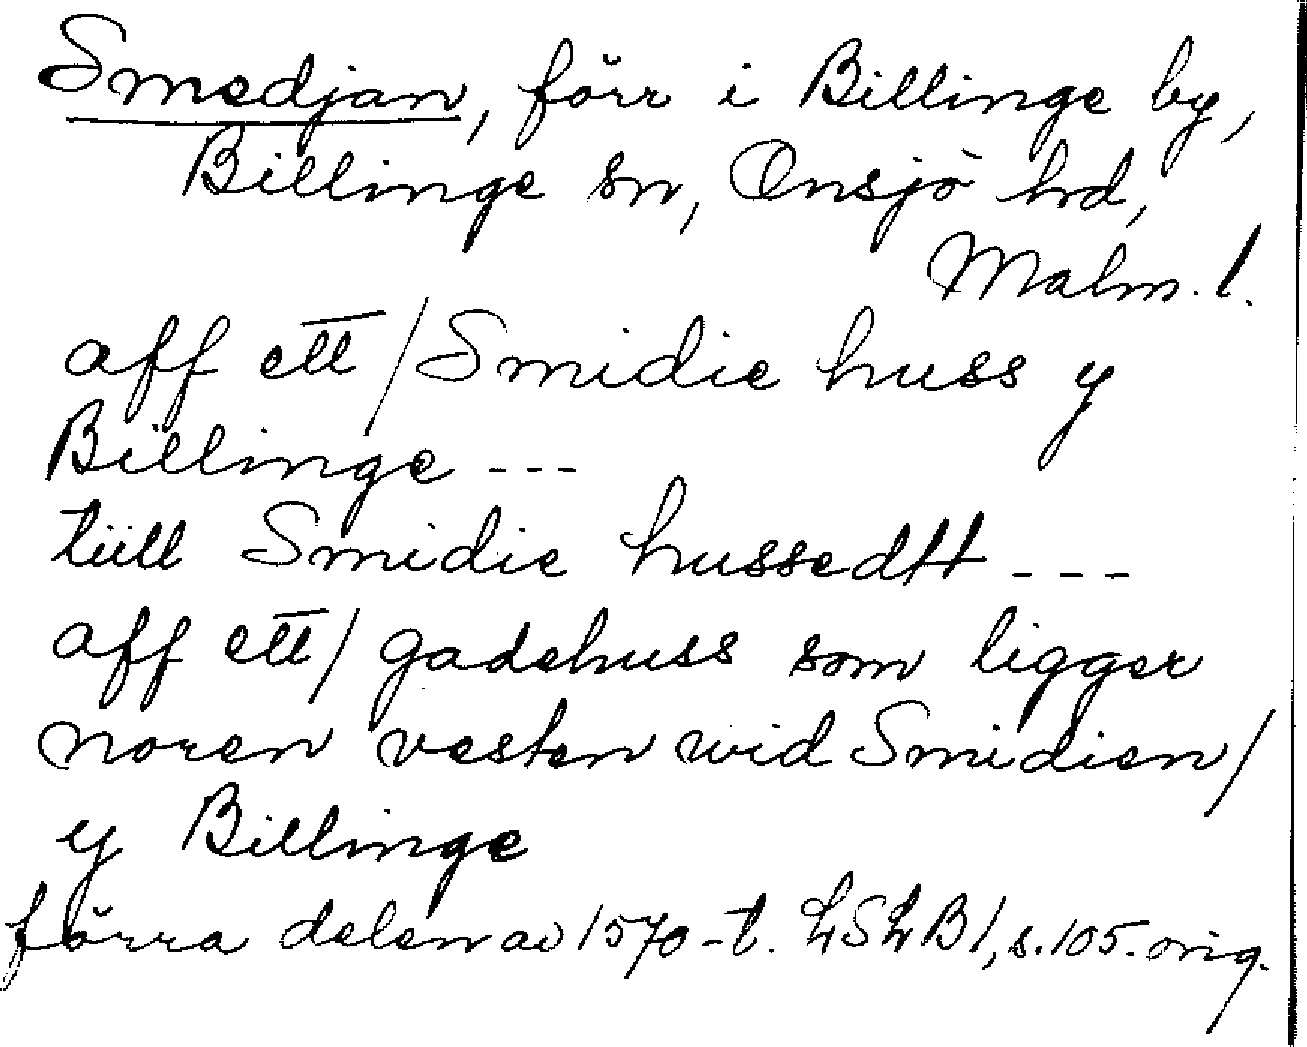 Smedjan, förr i Billinge by,
Billinge sn, Onsjö hd,
Malm. l.
aff ett / Smidie huss y
Billinge ---
tiill Smidie hussedtt ---
aff ett / gadehuss som ligger
noren vesten wid Smidien /
y Billinge
förra delen av 1570-t. LSLB 1, s. 105. orig.